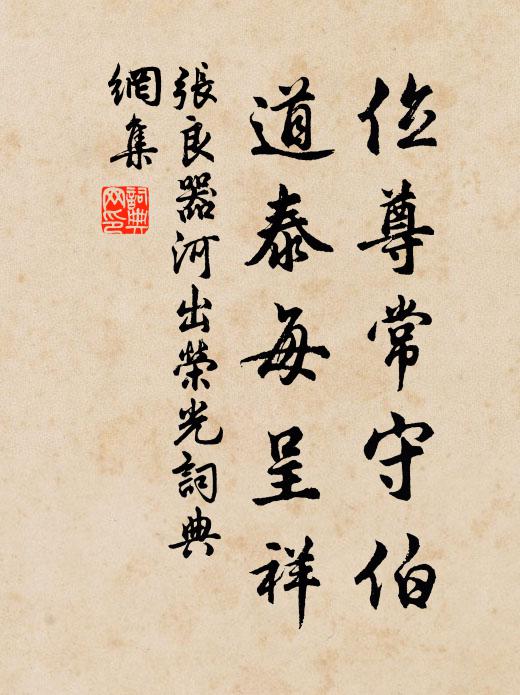 位尊常守伯
道泰每呈祥
張良器河出榮光詞典
網集
詞典網印